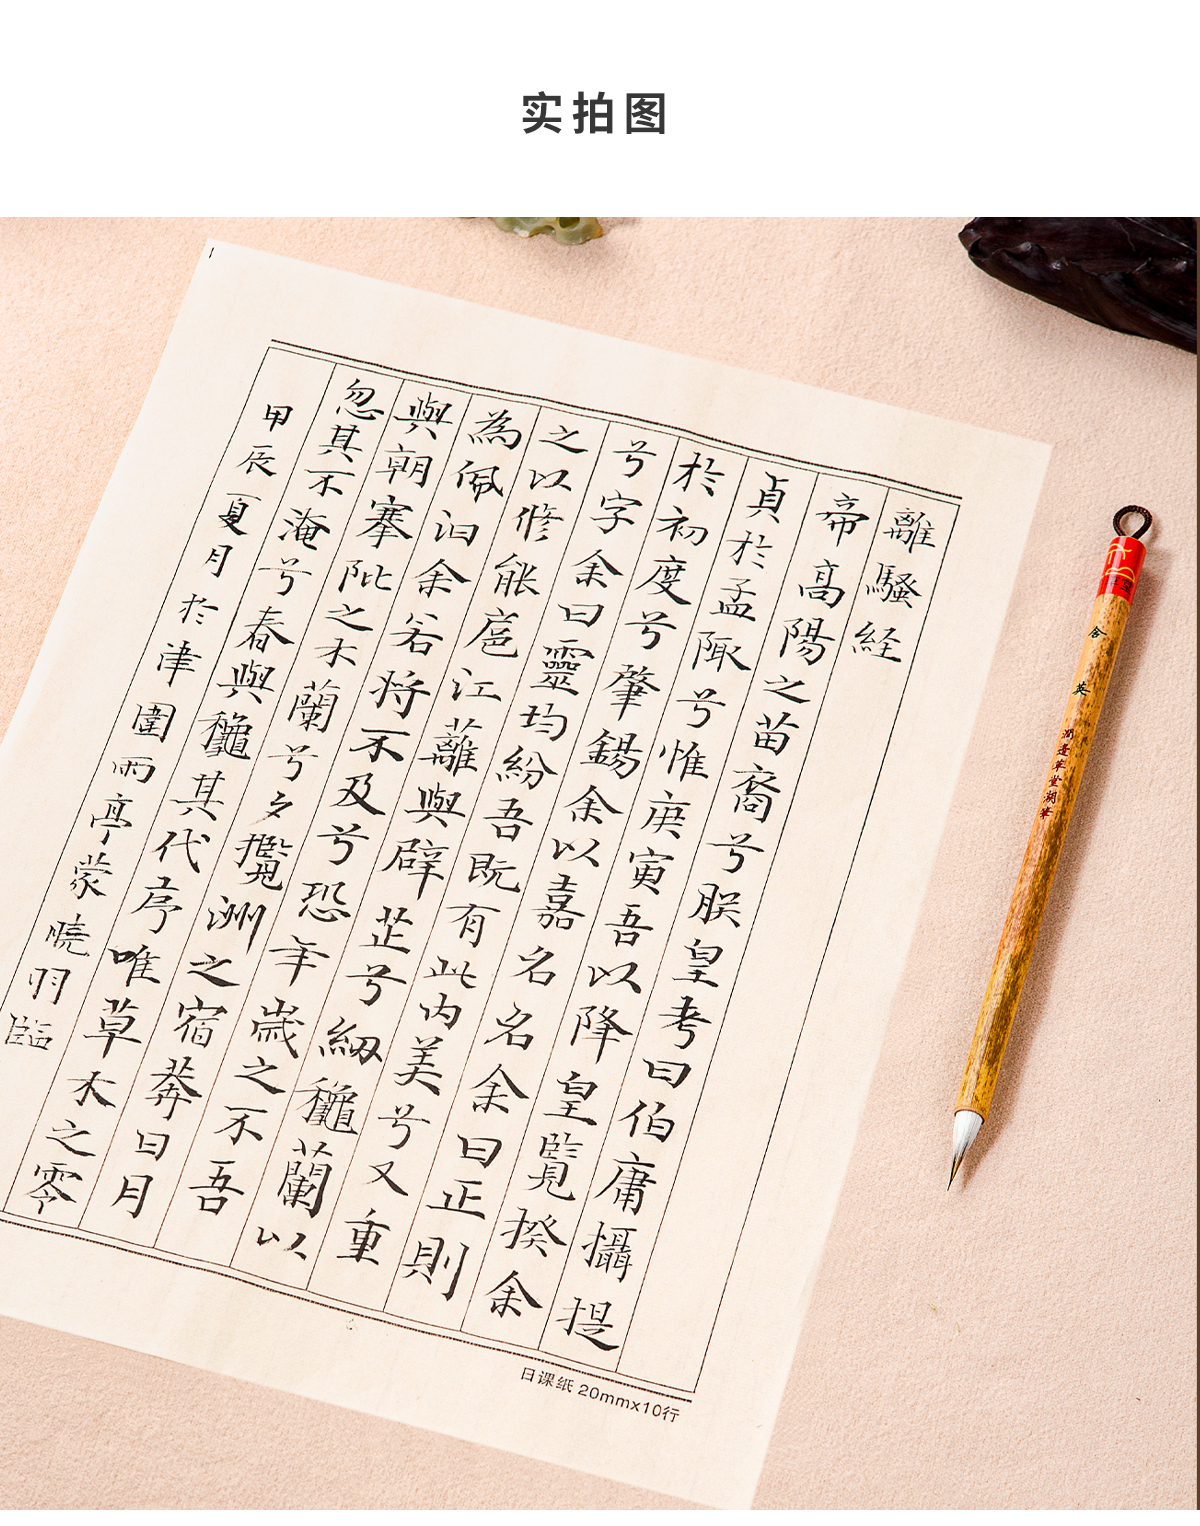 实拍图
離騷経
帝高陽之苗裔兮朕皇考曰伯庸攝提
貞於孟陬兮惟庚寅吾以降皇覽揆余
於初度兮肇錫余以嘉名名余曰正則
兮字余曰靈均紛吾既有此内美兮又重
之以修能扈江蘺與辟芷兮紉龝蘭以
為佩汩余若将不及兮恐年歲之不吾
與朝搴阰之木蘭兮夕攬洲之宿莽日月
忽其不淹兮春與龝其代序唯草木之零
甲辰夏月於津圍雨亭蒙曉羽臨
日课纸 20mmx10行
含英